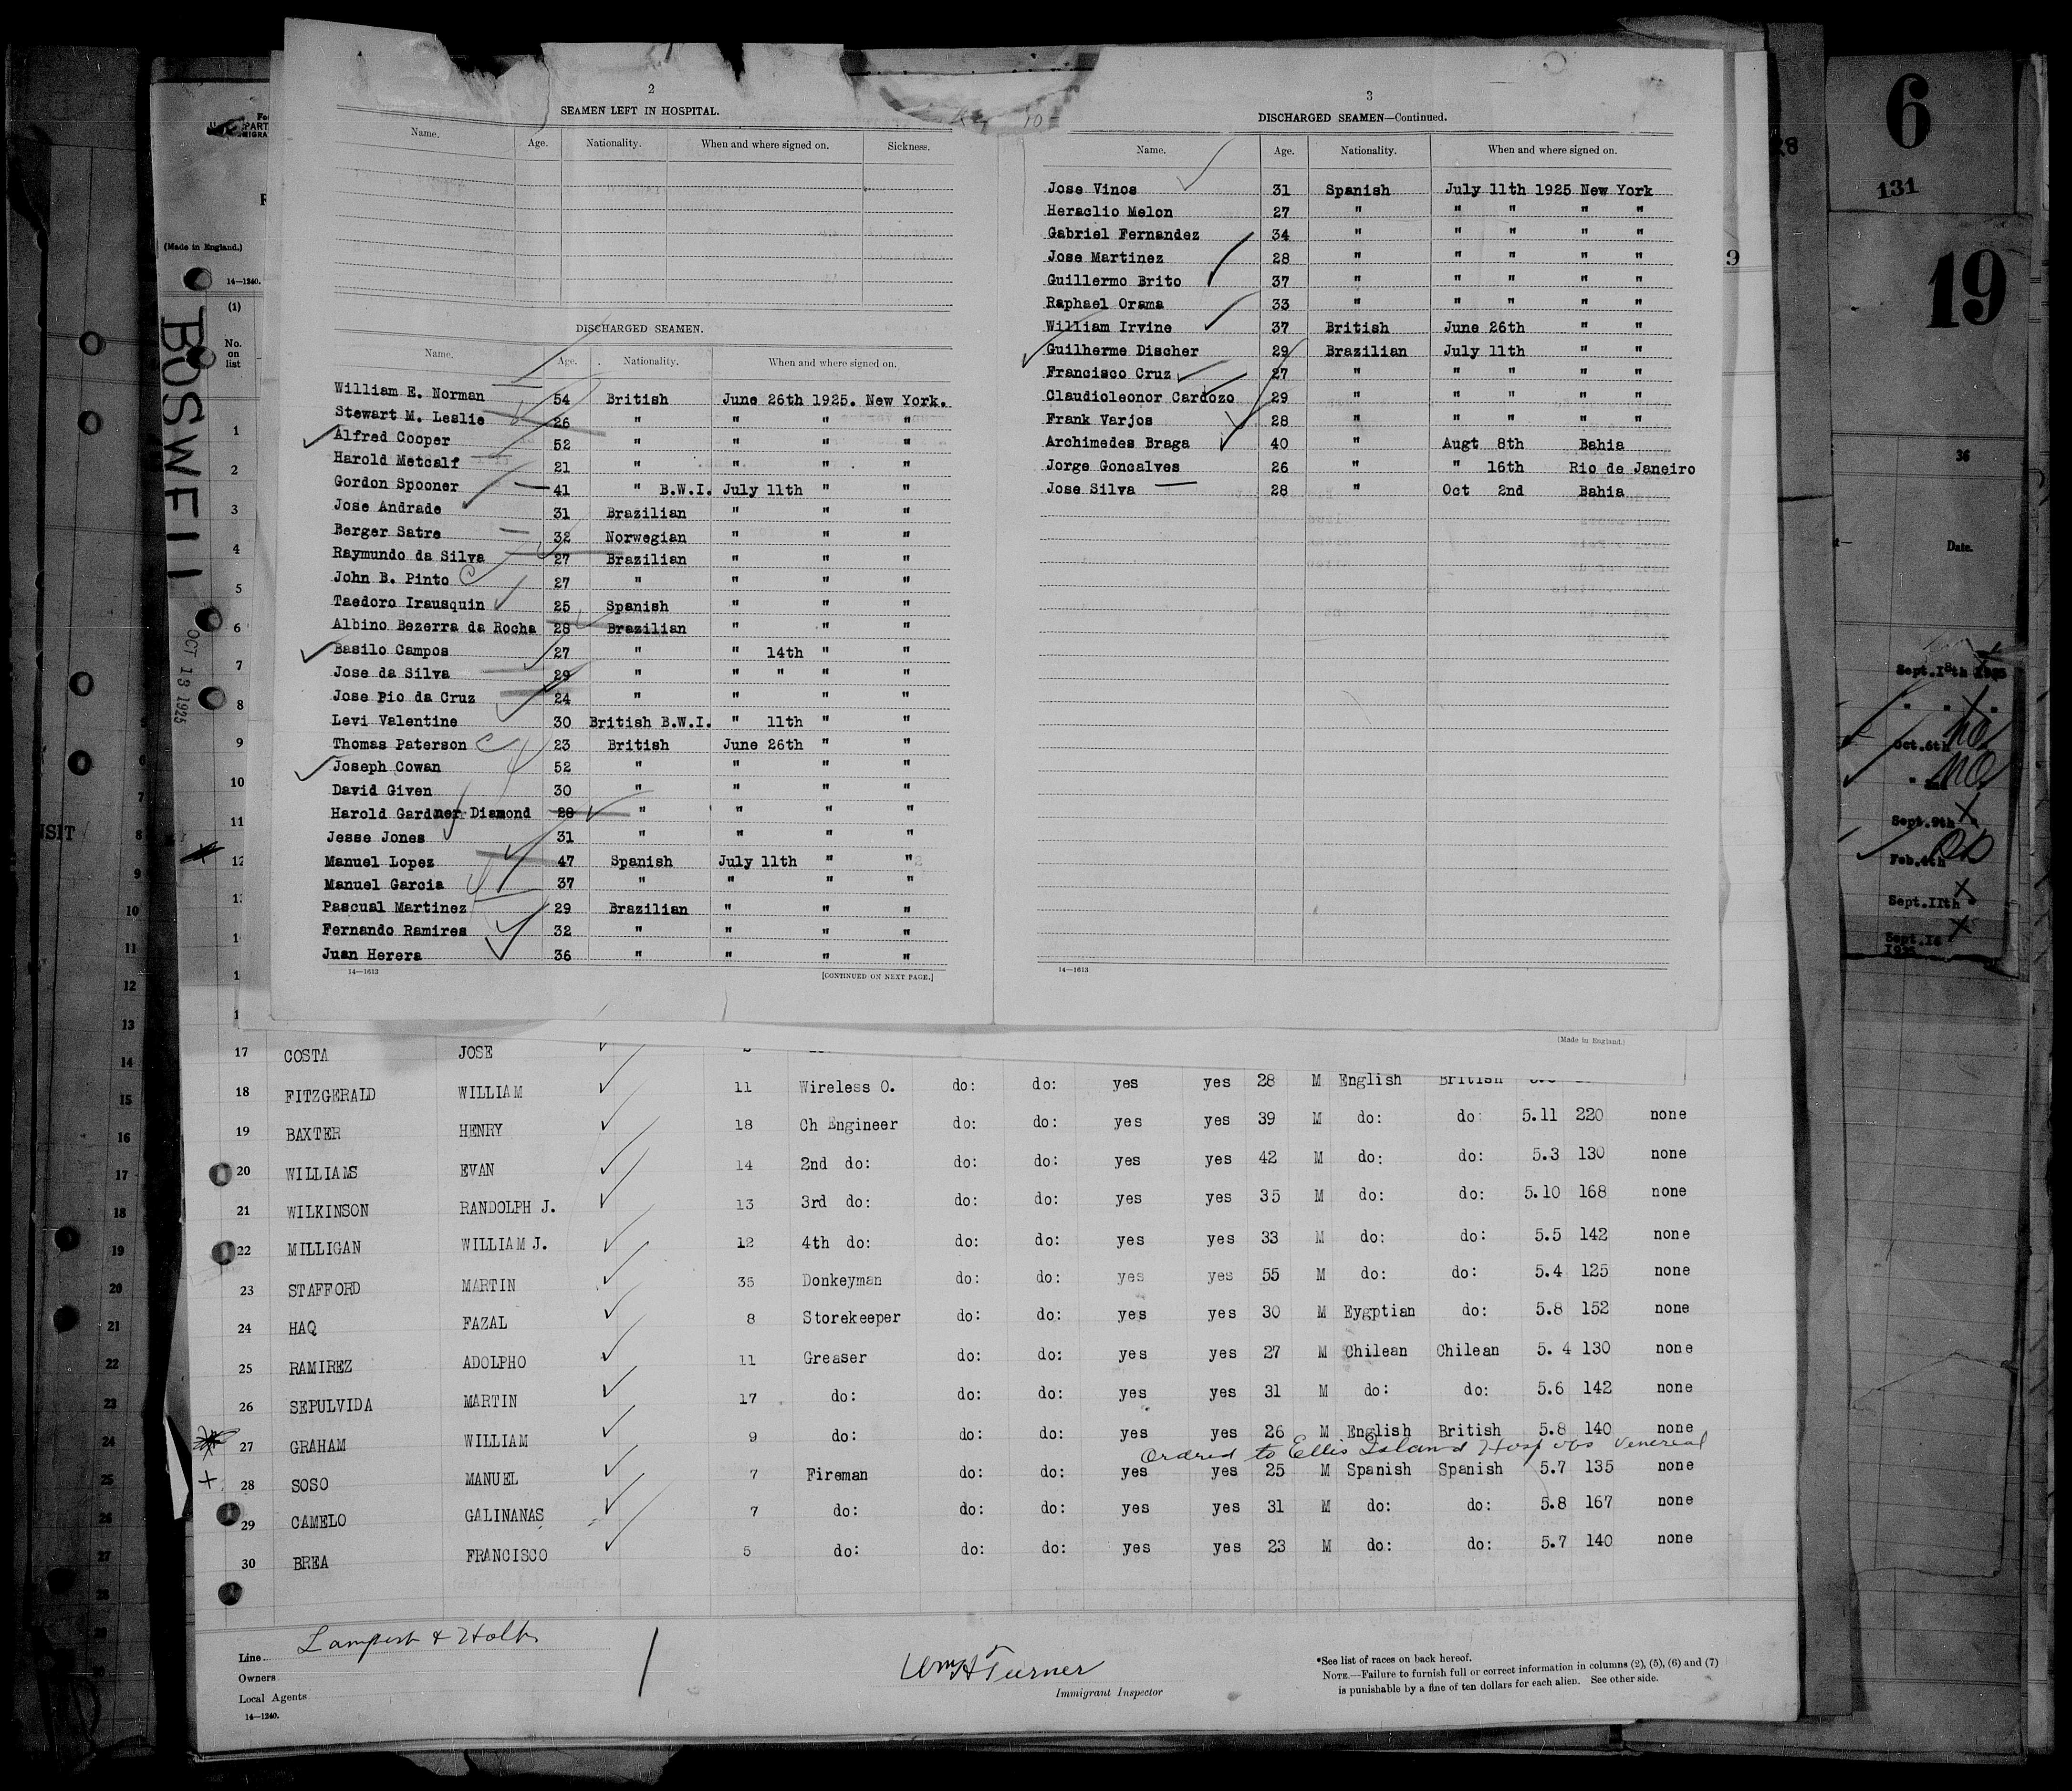 2
SEAMEN LEFT IN HOSPITAL.
Name. Age. Nationality. When and where signed on. Sickness.
DISCHARGED SEAMEN.
Name. Age. Nationality. When and where signed on.
William E. Norman 54 British June 26th 1925. New York.
Stewart M. Leslie 26 " " " "
Alfred Cooper 52 " " " "
Harold Metcalf 21 " " " "
Gordon Spooner 41 " B.W.I. July 11th " "
Jose Andrade 31 Brazilian " " "
Berger Satre 32 Norwegian " " "
Raymundo da Silva 27 Brazilian " " "
John B. Pinto C 27 " " " "
Taedoro Irausquin 25 Spanish " " "
Albino Bezerra da Rocha 28 Brazilian " " "
Basilo Campos 27 " " 14th " "
Jose da Silva 29 " " " " "
Jose Pio da Cruz 24 " " " "
Levi Valentine 30 British B.W.I. " 11th " "
Thomas Paterson C 23 British June 26th " "
Joseph Cowan 52 " " " "
David Given 30 " " " "
Harold Gardner Diamond 28 " " " "
Jesse Jones 31 " " " "
Manuel Lopez 47 Spanish July 11th " "
Manuel Garcia 37 " " " "
Pascual Martinez 29 Brazilian " " "
Fernando Ramires 32 " " " "
Juan Herera 36 " " " "
14—1613 [CONTINUED ON NEXT PAGE.]
3
DISCHARGED SEAMEN—Continued.
Name. Age. Nationality. When and where signed on.
Jose Vinos 31 Spanish July 11th 1925 New York
Heraclio Melon 27 " " " " "
Gabriel Fernandez 34 " " " " "
Jose Martinez 28 " " " " "
Guillermo Brito 37 " " " " "
Raphael Orama 33 " " " " "
William Irvine 37 British June 26th " "
Guilherme Discher 29 Brazilian July 11th " "
Francisco Cruz 27 " " " " "
Claudioleonor Cardozo 29 " " " " "
Frank Varjos 28 " " " " "
Archimedes Braga 40 " Augt 8th Bahia
Jorge Goncalves 26 " " 16th Rio de Janeiro
Jose Silva 28 " Oct 2nd Bahia
14—1613
(Made in England.)
14—1240.
(1)
No. on list
BOSWELL
OCT 13 1925
1
2
3
4
5
6
7
8
9
10
11
12
(Made in England.)
17 COSTA JOSE
18 FITZGERALD WILLIAM 11 Wireless O. do: do: yes yes 28 M English British
19 BAXTER HENRY 18 Ch Engineer do: do: yes yes 39 M do: do: 5.11 220 none
20 WILLIAMS EVAN 14 2nd do: do: do: yes yes 42 M do: do: 5.3 130 none
21 WILKINSON RANDOLPH J. 13 3rd do: do: do: yes yes 35 M do: do: 5.10 168 none
22 MILLIGAN WILLIAM J. 12 4th do: do: do: yes yes 33 M do: do: 5.5 142 none
23 STAFFORD MARTIN 35 Donkeyman do: do: yes yes 55 M do: do: 5.4 125 none
24 HAQ FAZAL 8 Storekeeper do: do: yes yes 30 M Eygptian do: 5.8 152 none
25 RAMIREZ ADOLPHO 11 Greaser do: do: yes yes 27 M Chilean Chilean 5.4 130 none
26 SEPULVIDA MARTIN 17 do: do: do: yes yes 31 M do: do: 5.6 142 none
27 GRAHAM WILLIAM 9 do: do: do: yes yes 26 M English British 5.8 140 none
Ordered to Ellis Island Hosp obs Venereal
28 SOSO MANUEL 7 Fireman do: do: yes yes 25 M Spanish Spanish 5.7 135 none
29 CAMELO GALINANAS 7 do: do: do: yes yes 31 M do: do: 5.8 167 none
30 BREA FRANCISCO 5 do: do: do: yes yes 23 M do: do: 5.7 140 none
Line Lamport & Holt
Owners
Local Agents
14—1240.
Wm H Turner
Immigrant Inspector
*See list of races on back hereof.
NOTE.—Failure to furnish full or correct information in columns (2), (5), (6) and (7)
is punishable by a fine of ten dollars for each alien. See other side.
6
131
19
36
Date.
Sept.18th
Oct.6th no
no
Sept.9th
Feb.4th
Sept.11th
Sept.16